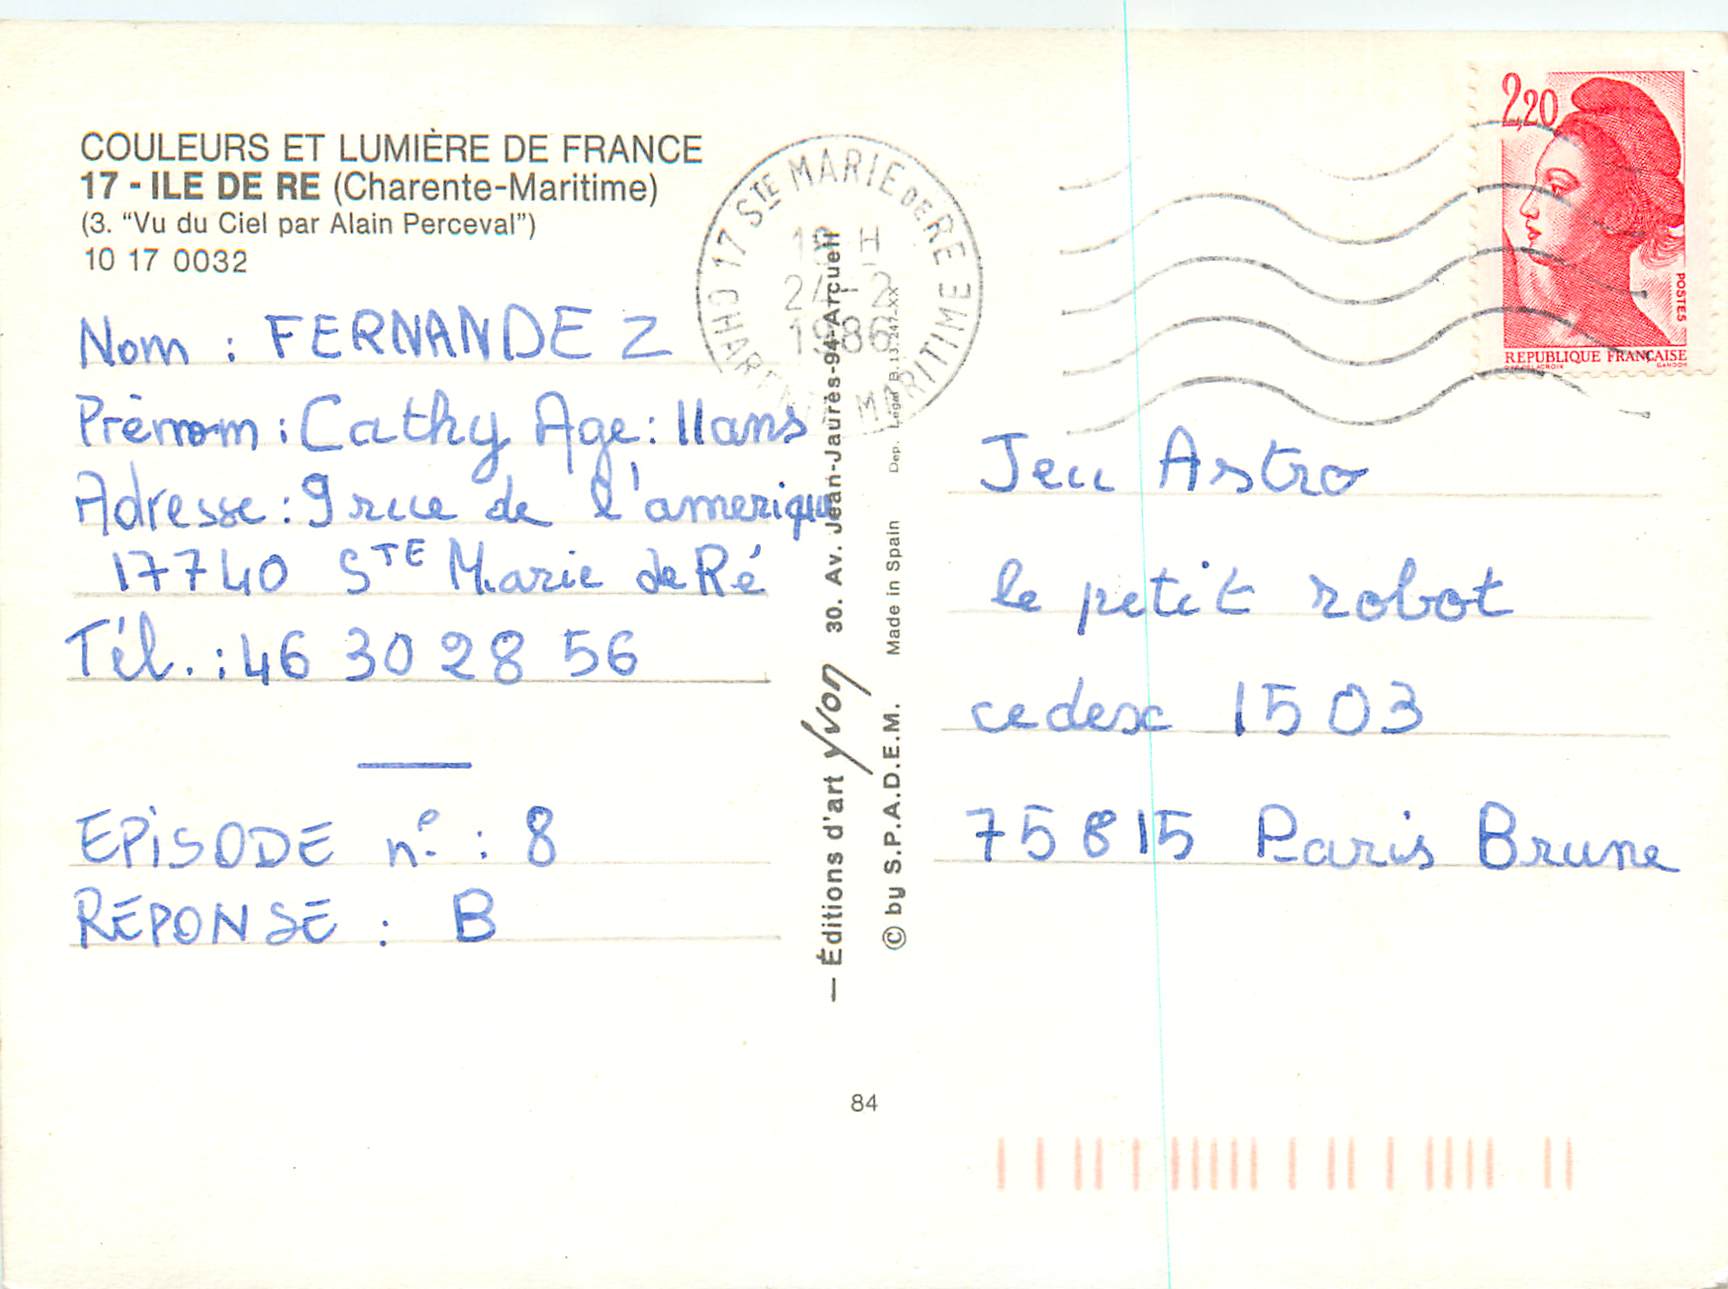 COULEURS ET LUMIÈRE DE FRANCE
17 - ILE DE RE (Charente-Maritime)
(3. “Vu du Ciel par Alain Perceval”)
10 17 0032
Nom : FERNANDEZ
Prénom : Cathy Age : 11ans
Adresse : 9 rue de l'amerique
17740 STE Marie de Ré
Tél. : 46 30 28 56
EPISODE n° : 8
REPONSE : B
17 STE MARIE DE RE
CHARENTE MARITIME
18 H
24-2
1986
— Éditions d'art yvon 30. Av. Jean-Jaurès-94-Arcueil
© by S.P.A.D.E.M. Made in Spain Dep. Légal B.
84
2,20
POSTES
REPUBLIQUE FRANÇAISE
GANDON
Jeu Astro
le petit robot
cedex 1503
75815 Paris Brune